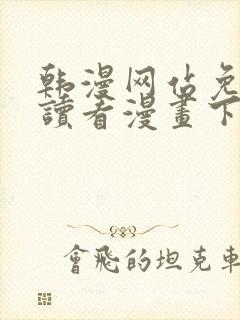 韩漫网佔免
讀者漫畫下
會飛的坦克車